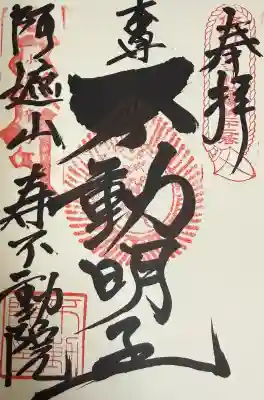 奉拝
本尊
不動明王
阿遮山
寿不動院